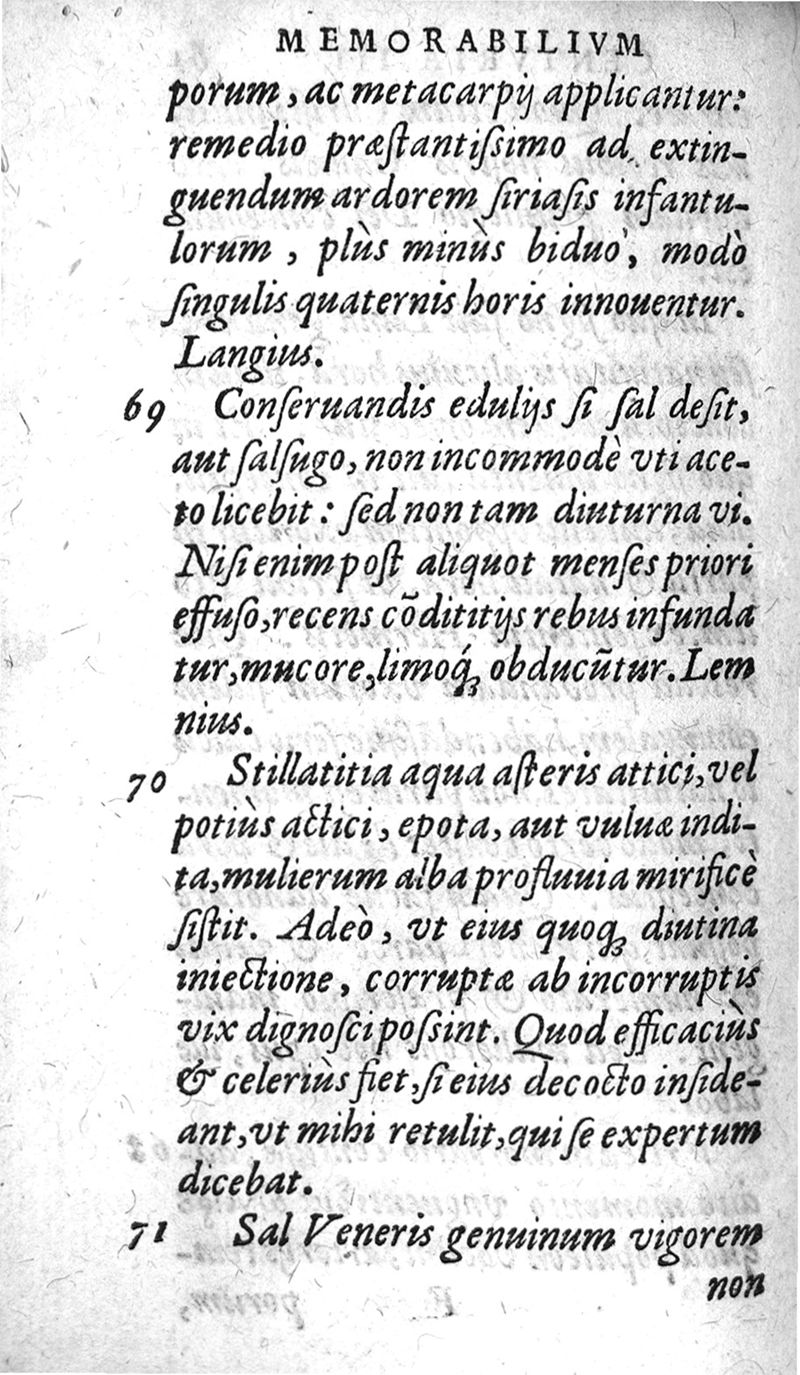 MEMORABILIVM
porum, ac metacarpij applicantur:
remedio præſtantiſsimo ad extin-
guendum ardorem ſiriaſis infantu-
lorum, plùs minùs biduò, modò
ſingulis quaternis horis innouentur.
Langius.
69 Conſeruandis edulijs ſi ſal deſit,
aut ſalſugo, non incommodè vti ace-
to licebit: ſed non tam diuturna vi.
Niſi enim poſt aliquot menſes priori
effuſo, recens cõdititijs rebus infunda
tur, mucore, limoq́; obducũtur. Lem
nius.
70 Stillatitia aqua aſteris attici, vel
potiùs actici, epota, aut vuluæ indi-
ta, mulierum alba profluuia mirificè
ſiſtit. Adeò, vt eius quoq; diutina
iniectione, corruptæ ab incorruptis
vix dignoſci poſsint. Quod efficaciùs
& celeriùs fiet, ſi eius decocto inſide-
ant, vt mihi retulit, qui ſe expertum
dicebat.
71 Sal Veneris genuinum vigorem
non